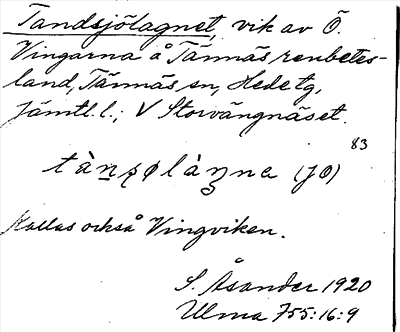 Tandsjölagnet, vik av Ö.
Vingarna å Tännäs renbetes-
land, Tännäs sn, Hede tg,
Jämtl. l.; V Storvängnäset.
83
(JO)
Kallas också Vingviken.
S. Åsander 1920
Ulma 755:16:9